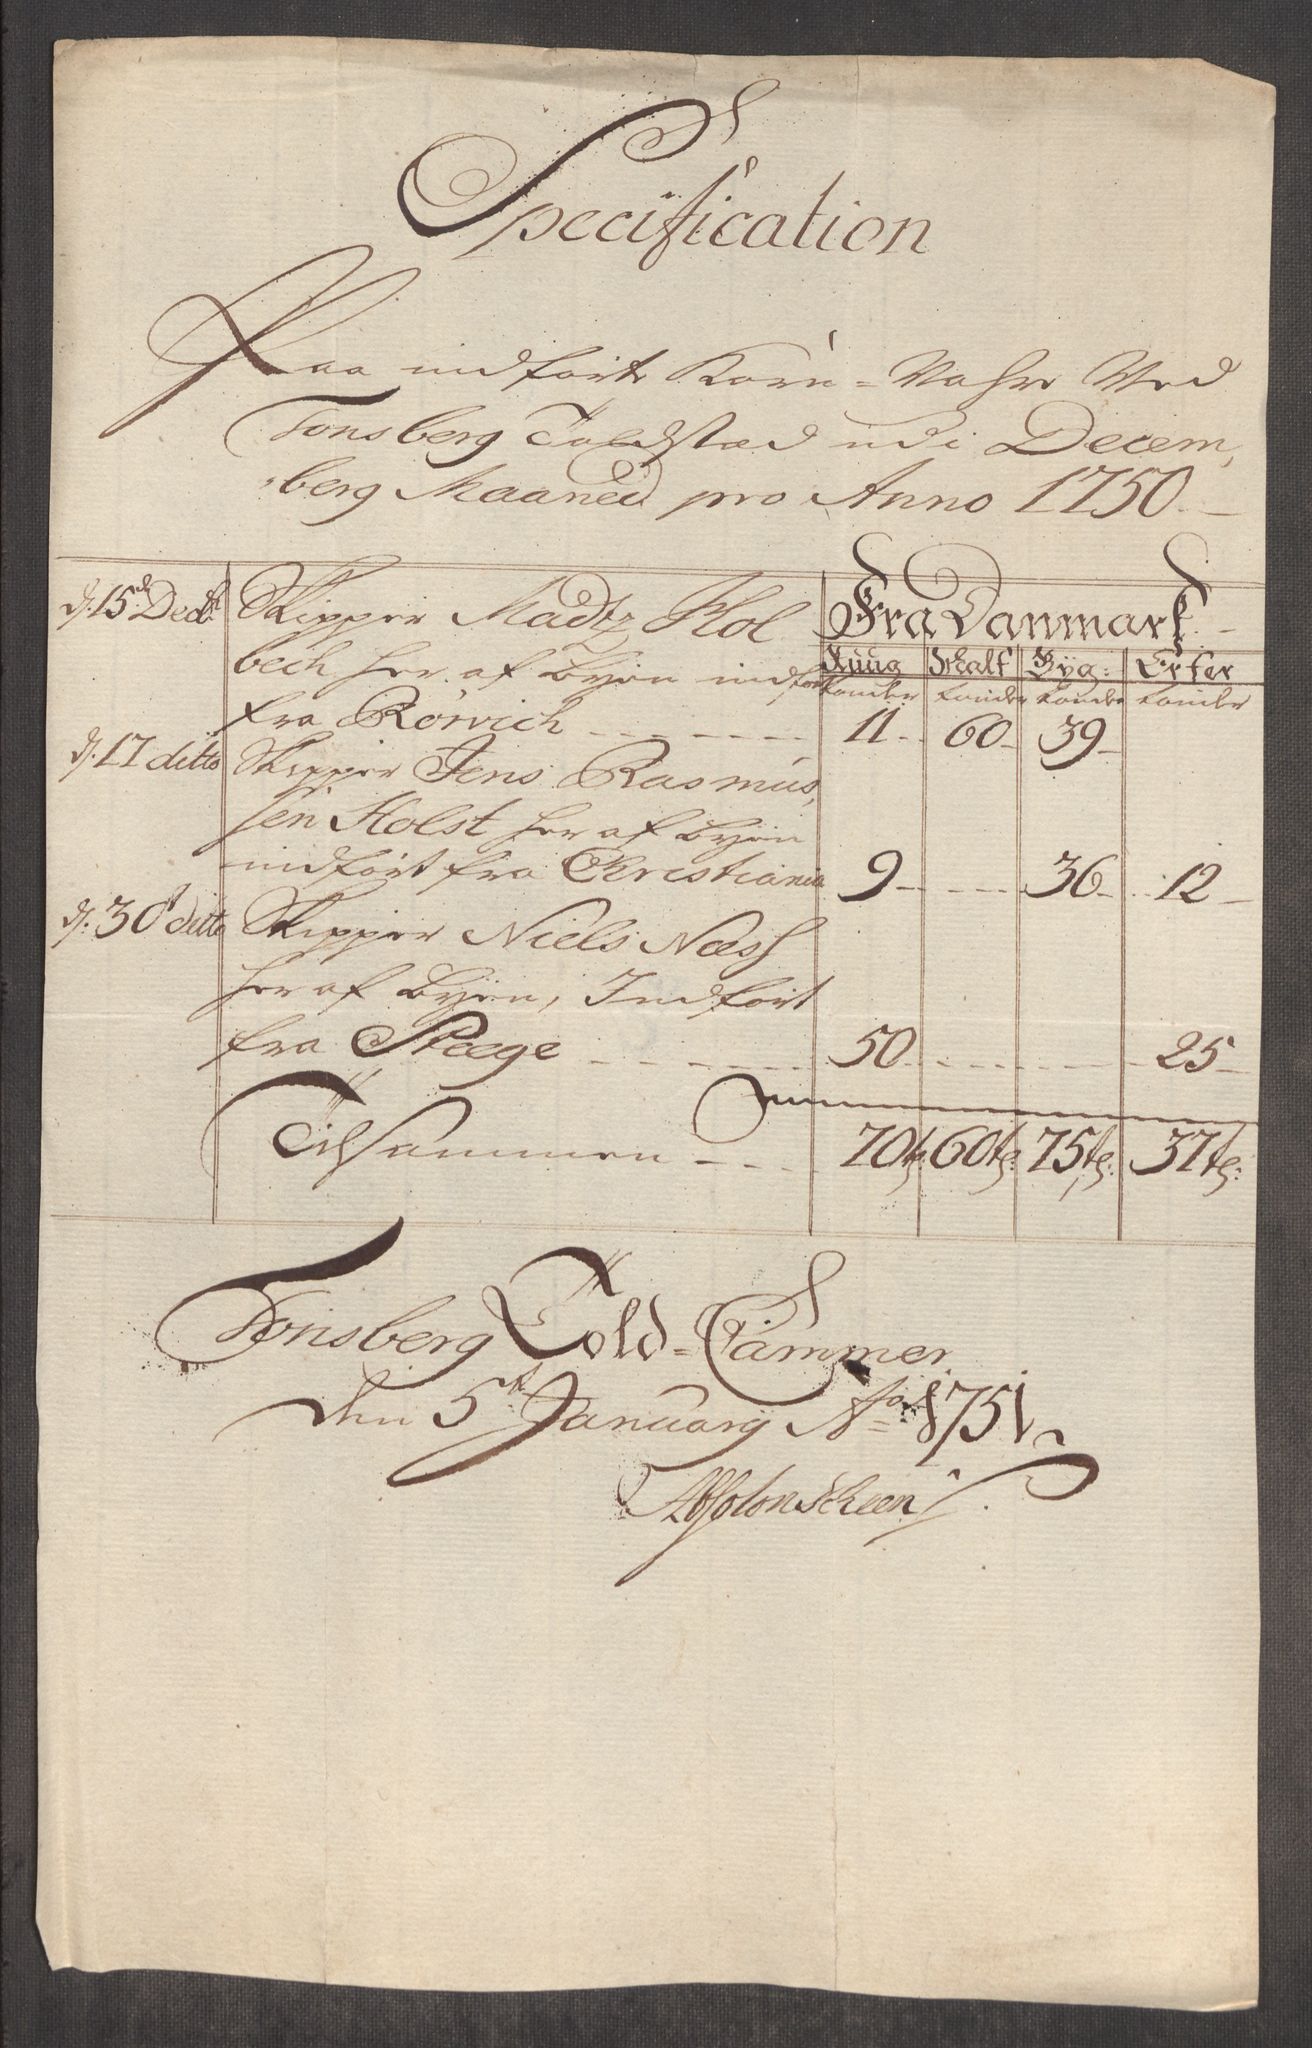 Specification
Paa indførte Korn-Vahre Ved
Tonsberg Toldstæd udi Decem,
berg Maaned pro Anno 1750.
Fra Danmark
Ruug Malt Byg: Erter
tønder tønder tønder tønder
d. 15de Decbr Skipper Madtz Hol
bech her af Byen indført
fra Rørvich 11 60 39
d. 17 ditto Skipper Jens Rasmus,
sen Holst her af Byen
indført fra Christiania 9 36 12
d. 30t ditto Skipper Niels Næss
her af Byen, Indført
fra Stæge 50 25
Tilsammen 70tr 60tr: 75tr: 37tr:
Tonsberg Told-Cammer
den 5t January Ao 1751
Absolon Scheen